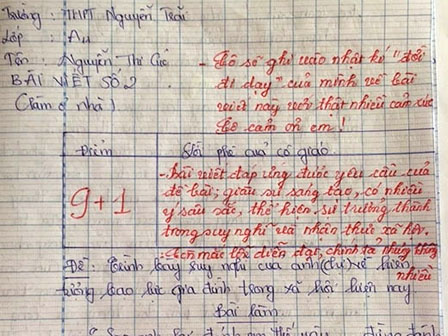 Trường : THPT Nguyễn Trãi
Lớp : A4
Tên : Nguyễn Thị
BÀI VIẾT SỐ 2
(Làm ở nhà)
- Cô sẽ ghi vào nhật kí "đời
đi dạy" của mình về bài
viết này với thật nhiều cảm xúc
Cô cảm ơn em !
Điểm
Lời phê của cô giáo
9+1
- Bài viết đáp ứng được yêu cầu của
đề bài; giàu sự sáng tạo, có nhiều
ý sâu sắc, thể hiện sự trưởng thành
trong suy nghĩ và nhận thức xã hội.
- Còn mắc lỗi diễn đạt, chính tả nhưng không
nhiều
Đề : Trình bày suy nghĩ của anh (chị) về hiện
tượng bạo lực gia đình trong xã hội hiện nay
Bài làm